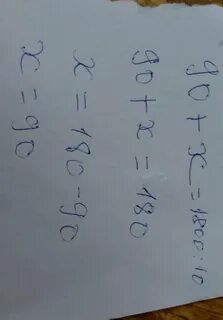 90 + x = 1800:10
90 + x = 180
x = 180 - 90
x = 90